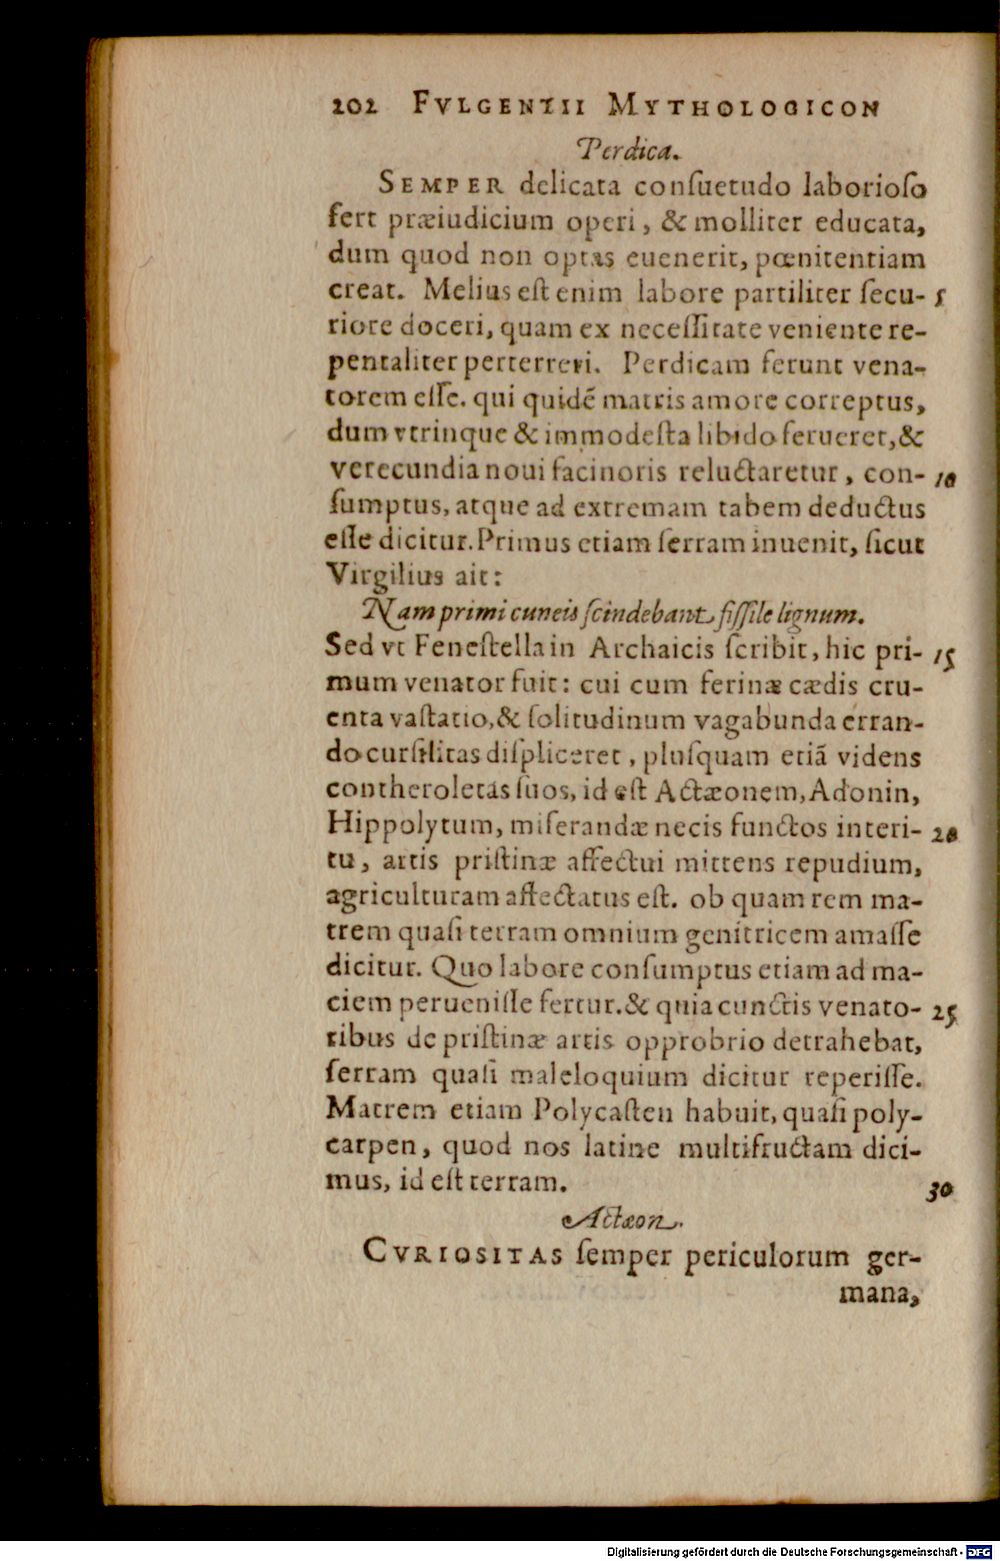 202 FVLGENTII MYTHOLOGICON
Perdica.
SEMPER delicata conſuetudo laborioſo
fert præiudicium operi, & molliter educata,
dum quod non optas euenerit, pœnitentiam
creat. Melius eſt enim labore partiliter ſecu- 5
riore doceri, quam ex neceſſitate veniente re-
pentaliter perterreri. Perdicam ferunt vena-
torem eſſe. qui quidẽ matris amore correptus,
dum vtrinque & immodeſta libido ferueret, &
verecundia noui facinoris reluctaretur, con- 10
ſumptus, atque ad extremam tabem deductus
eſſe dicitur. Primus etiam ſerram inuenit, ſicut
Virgilius ait:
Nam primi cuneis ſcindebant fiſſile lignum.
Sed vt Feneſtella in Archaicis ſcribit, hic pri- 15
mum venator fuit: cui cum ferinæ cædis cru-
enta vaſtatio, & ſolitudinum vagabunda erran-
do curſilitas diſpliceret, pluſquam etiã videns
contheroletas ſuos, id eſt Actæonem, Adonin,
Hippolytum, miſerandæ necis functos interi- 20
tu, artis priſtinæ affectui mittens repudium,
agriculturam affectatus eſt. ob quam rem ma-
trem quaſi terram omnium genitricem amaſſe
dicitur. Quo labore conſumptus etiam ad ma-
ciem perueniſſe fertur. & quia cunctis venato- 25
ribus de priſtinæ artis opprobrio detrahebat,
ſerram quaſi maleloquium dicitur reperiſſe.
Matrem etiam Polycaſten habuit, quaſi poly-
carpen, quod nos latine multifructam dici-
mus, id eſt terram. 30
Actæon.
CVRIOSITAS ſemper periculorum ger-
mana,
Digitalisierung gefördert durch die Deutsche Forschungsgemeinschaft - DFG